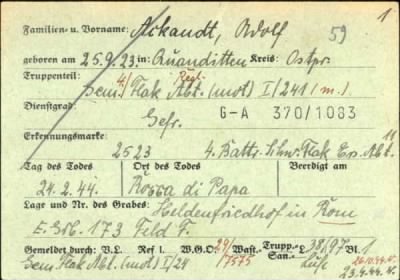 1
Familien- u. Vorname: Aikandt, Adolf 59
geboren am 25.9.23. in Quanditten Kreis: Ostpr.
Truppenteil: 4/ Regt.
Gem. Flak Abt. (mot) I/241 (m.)
Dienstgrad: Gefr. G-A 370/1083
Erkennungsmarke: 11
2523 4. Battr. Schw. Flak Ers. Abt.
Tag des Todes Ort des Todes Beerdigt am
24.2.44. Rocca di Papa
Lage und Nr. des Grabes: Heldenfriedhof in Rom
E. Grb. 173 Feld F.
Gemeldet durch: V.L. Ref I. W.G.O. 29/ Wast. Trupp. L. 38/97 Bl. 1
Gem Flak Abt. (mot) I/24 17575 San.- 26.10.44.
23.4.44.